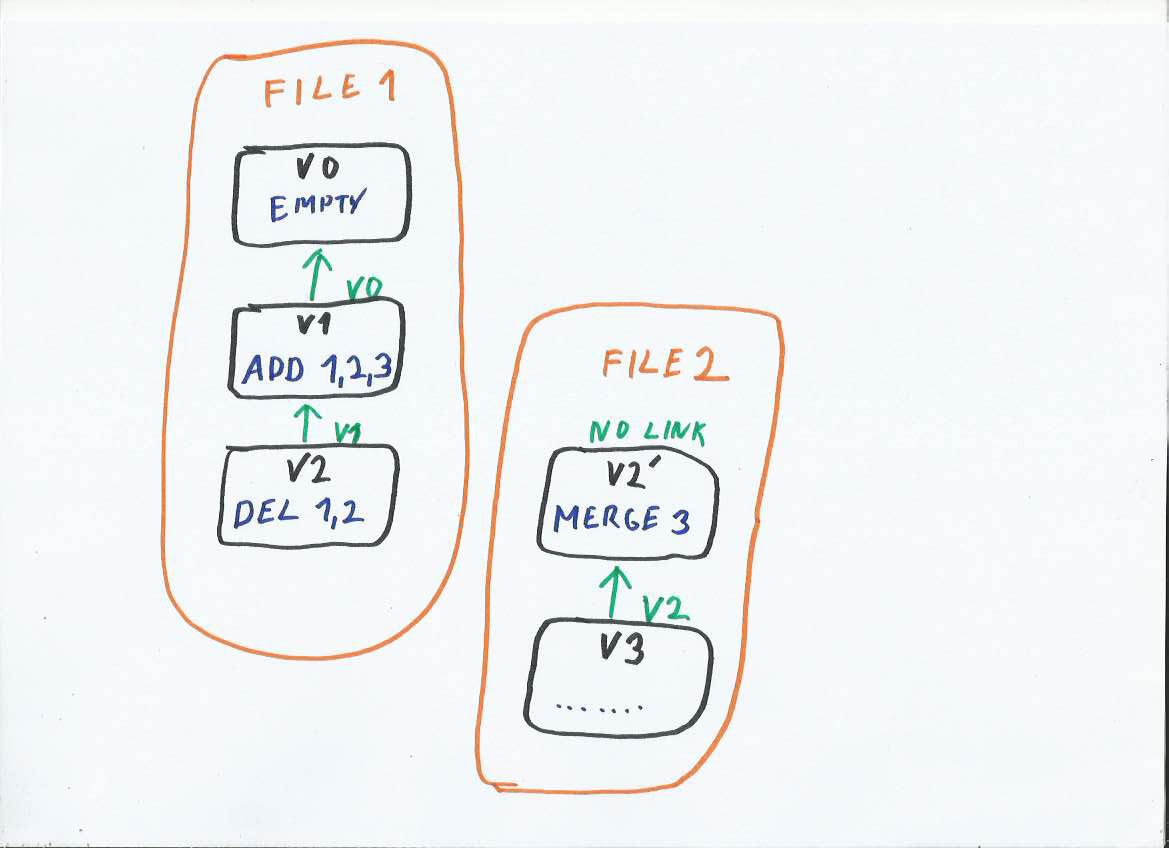 FILE 1
V0
EMPTY
V0
V1
ADD 1,2,3
V1
V2
DEL 1,2
FILE 2
NO LINK
V2′
MERGE 3
V2
V3
.......